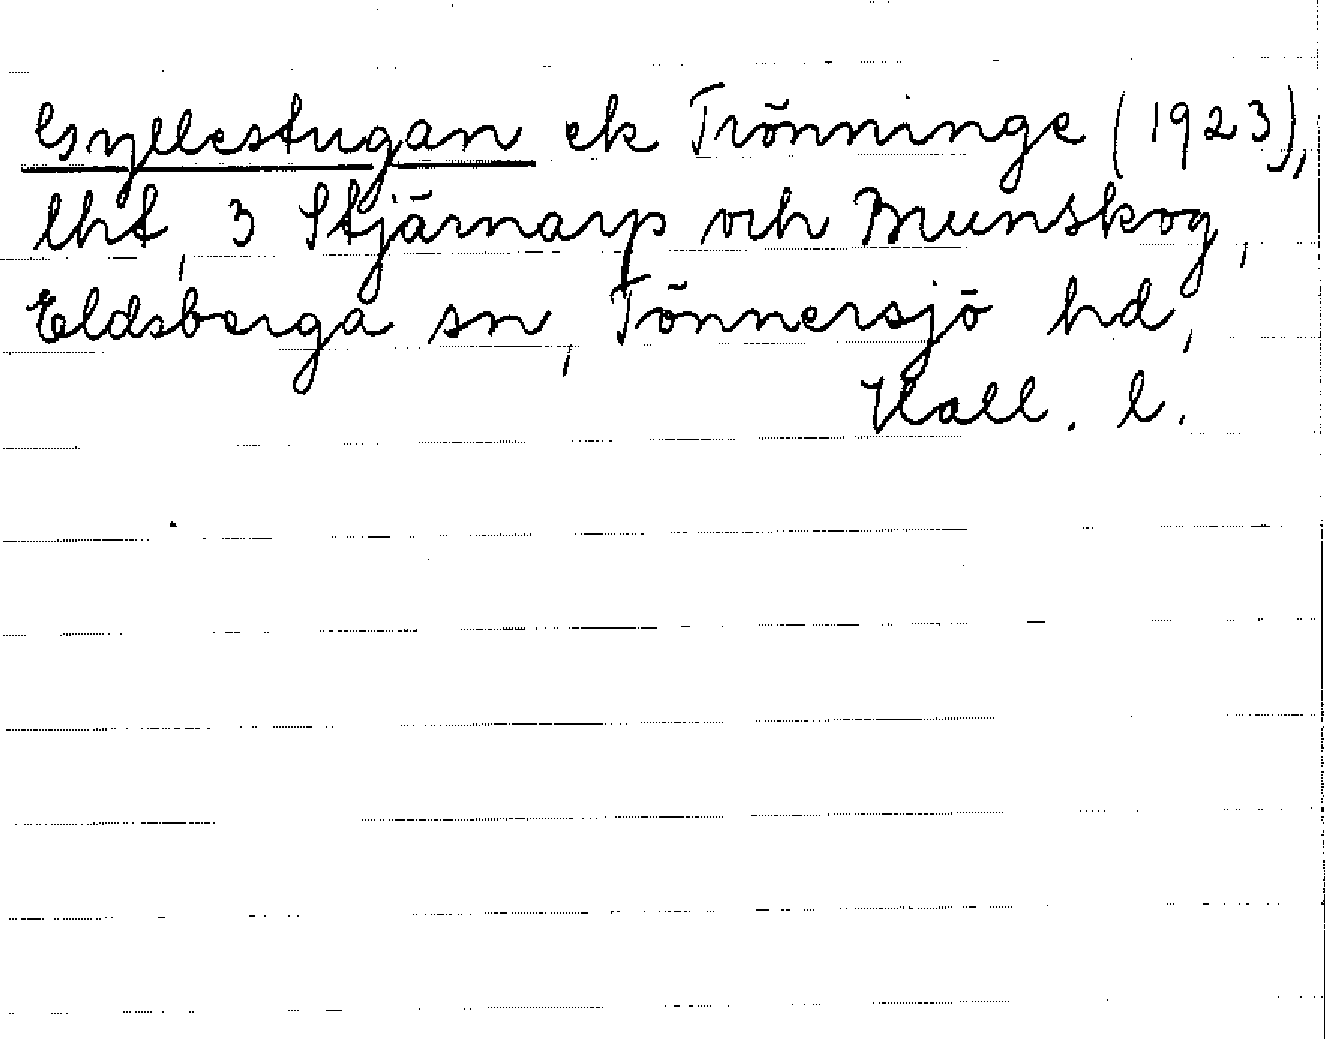 Gyllestugan ek Trönninge (1923),
lht, 3 Stjärnarp och Brunskog,
Eldsberga sn, Tönnersjö hd,
Hall. l.